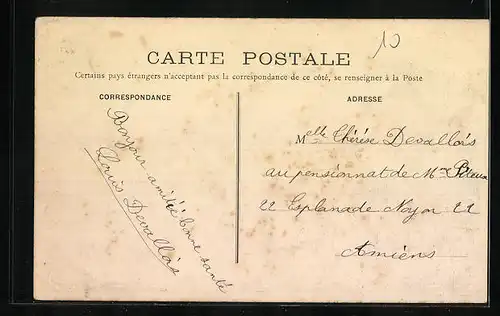 10
CARTE POSTALE
Certains pays étrangers n'acceptant pas la correspondance de ce côté, se renseigner à la Poste
CORRESPONDANCE
Bonjour amitié bonne santé
Louis Devallois
ADRESSE
Melle Thérèse Devallois
au pensionnat de Mr
22 Esplanade Noyon 22
Amiens